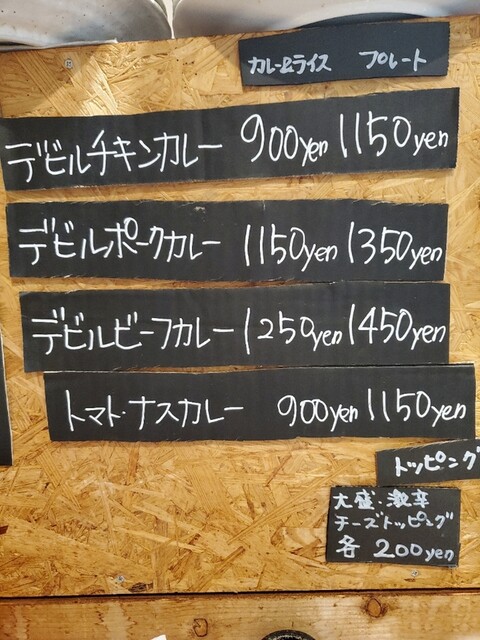 カレー&ライス プレート
デビルチキンカレー 900yen 1150yen
デビルポークカレー 1150yen 1350yen
デビルビーフカレー 1250yen 1450yen
トマト・ナスカレー 900yen 1150yen
トッピング
大盛・激辛
チーズトッピング
各 200yen